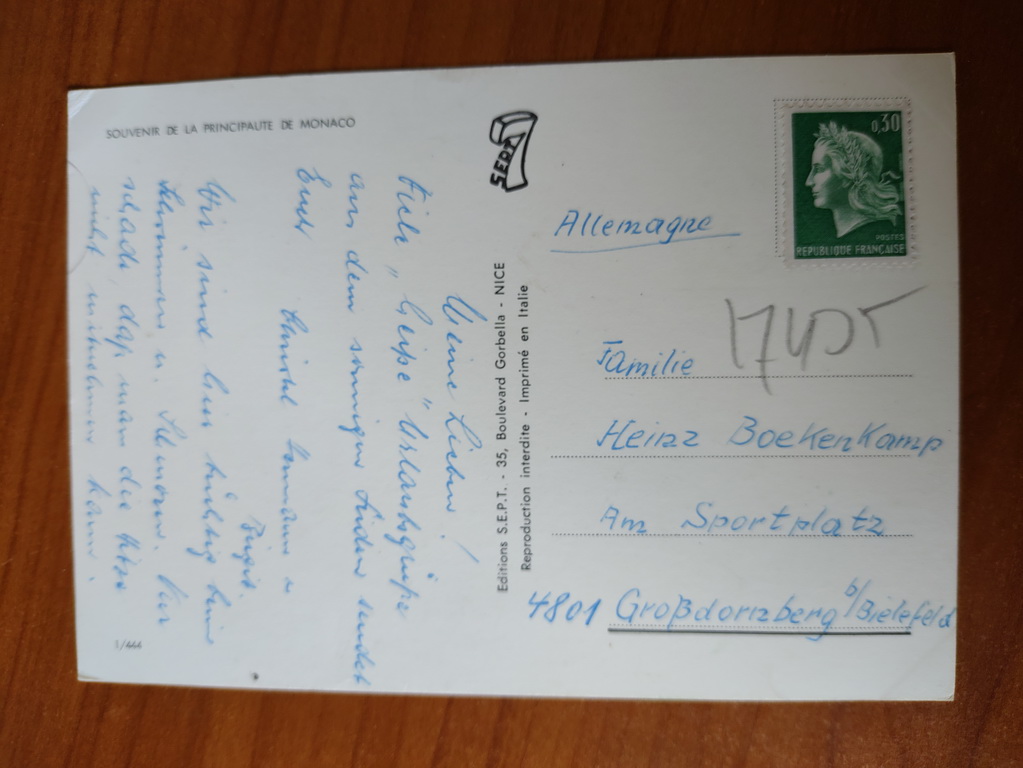 SOUVENIR DE LA PRINCIPAUTE DE MONACO
Meine Lieben!
Viele "heiße" Urlaubsgrüße
aus dem sonnigen Süden sendet
Euch
u
Birgit.
Wir sind hier tüchtig beim
Schwimmen u. Nur
schade, daß man die Hitze
nicht mitnehmen kann.
1/444
SEPT
Editions S.E.P.T. - 35, Boulevard Gorbella - NICE
Reproduction interdite - Imprimé en Italie
0,30
POSTES
REPUBLIQUE FRANÇAISE
Allemagne
Familie
Heinz Boekenkamp
Am Sportplatz
4801 Großdornberg b/Bielefeld